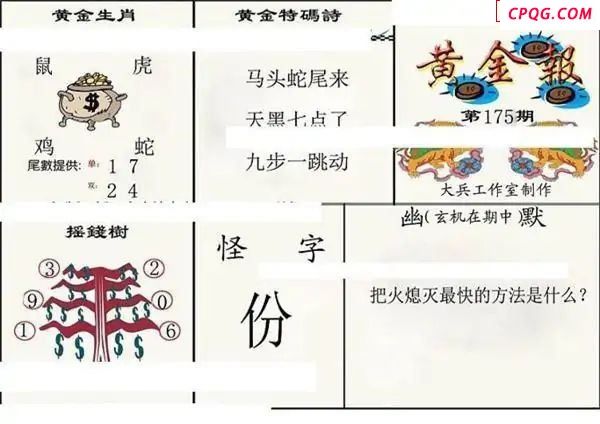 CPQG.COM
黄金生肖
鼠 虎
$
鸡 蛇
尾數提供: 单: 1 7
双: 2 4
黄金特碼詩
马头蛇尾来
天黑七点了
九步一跳动
黄金報
第175期
大兵工作室制作
摇錢樹
3 2
9 0
1 6
$ $ $ $ $ $
怪 字
份
幽(玄机在期中)默
把火熄灭最快的方法是什么?